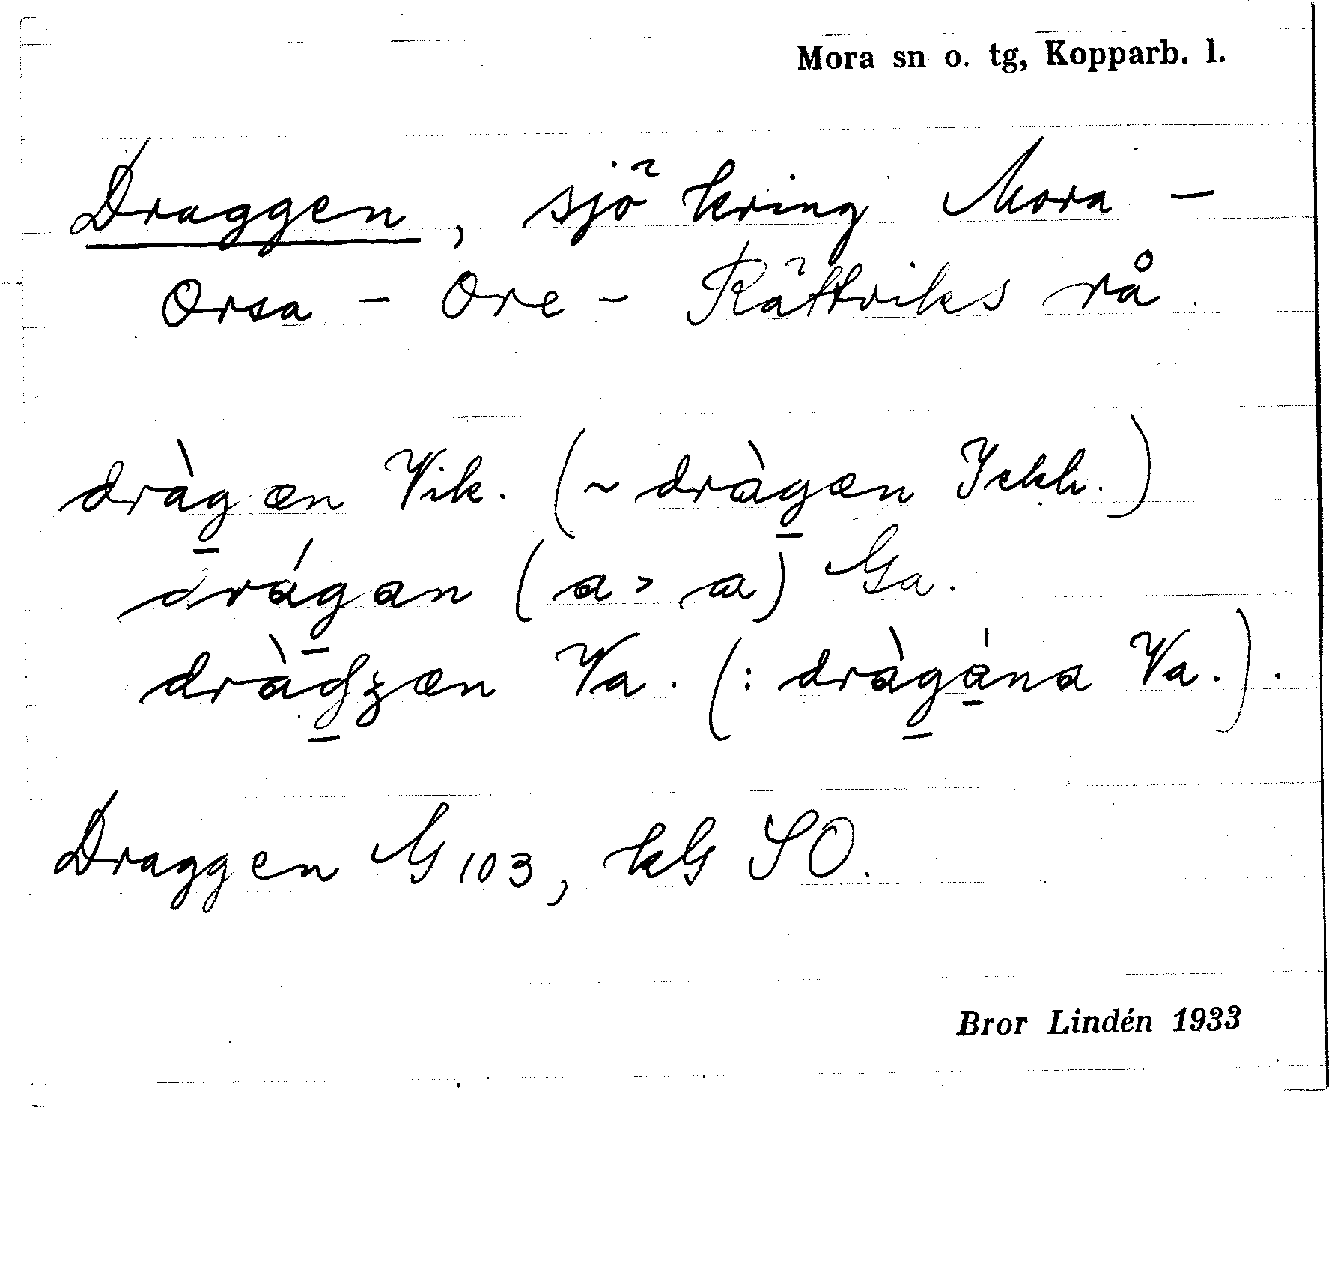 Mora sn o. tg, Kopparb. l.
Draggen, sjö kring Mora -
Orsa - Ore - Rättviks rå.
dràg̲æn Vik. (~ dràg̲æn Iskh.)
drág̲an (a > a) Ga.
dràg̲ʒæn Va. (: dràg̲a̲na Va.).
Draggen G 103, kG SO.
Bror Lindén 1933